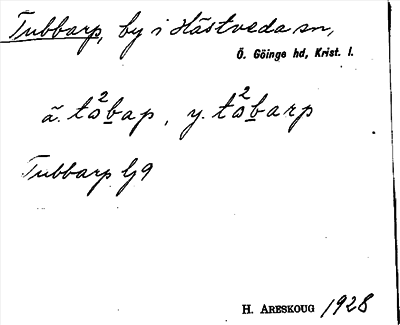 Tubbarp, by i Hästveda sn,
Ö. Göinge hd, Krist. l.
ä. tò²bap, y. tò²barp
Tubbarp Lj9
H. ARESKOUG 1928